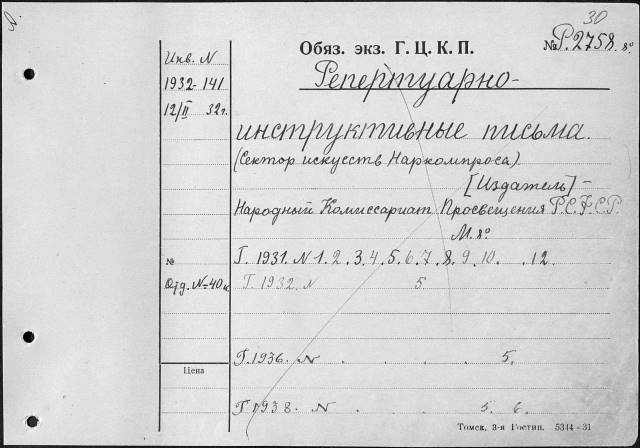 30
Обяз. экз. Г. Ц. К. П.
№ Р.2758. 8º
Инв. N
1932-141
12/II 32г.
Репертуарно-
инструктивные письма.
(Сектор искусств Наркомпроса).
[Издатель] -
Народный Комиссариат Просвещения Р.С.Ф.С.Р.
М. 8º
Г. 1931. N 1. 2. 3. 4. 5. 6. 7. 8. 9. 10. . 12.
№
Отд. N-40к
Г. 1932. N 5.
Г. 1936. N . . . . 5.
Цена
Г. 1938. N . . . 5. 6.
Томск, 3-я Гостип. 5344-31